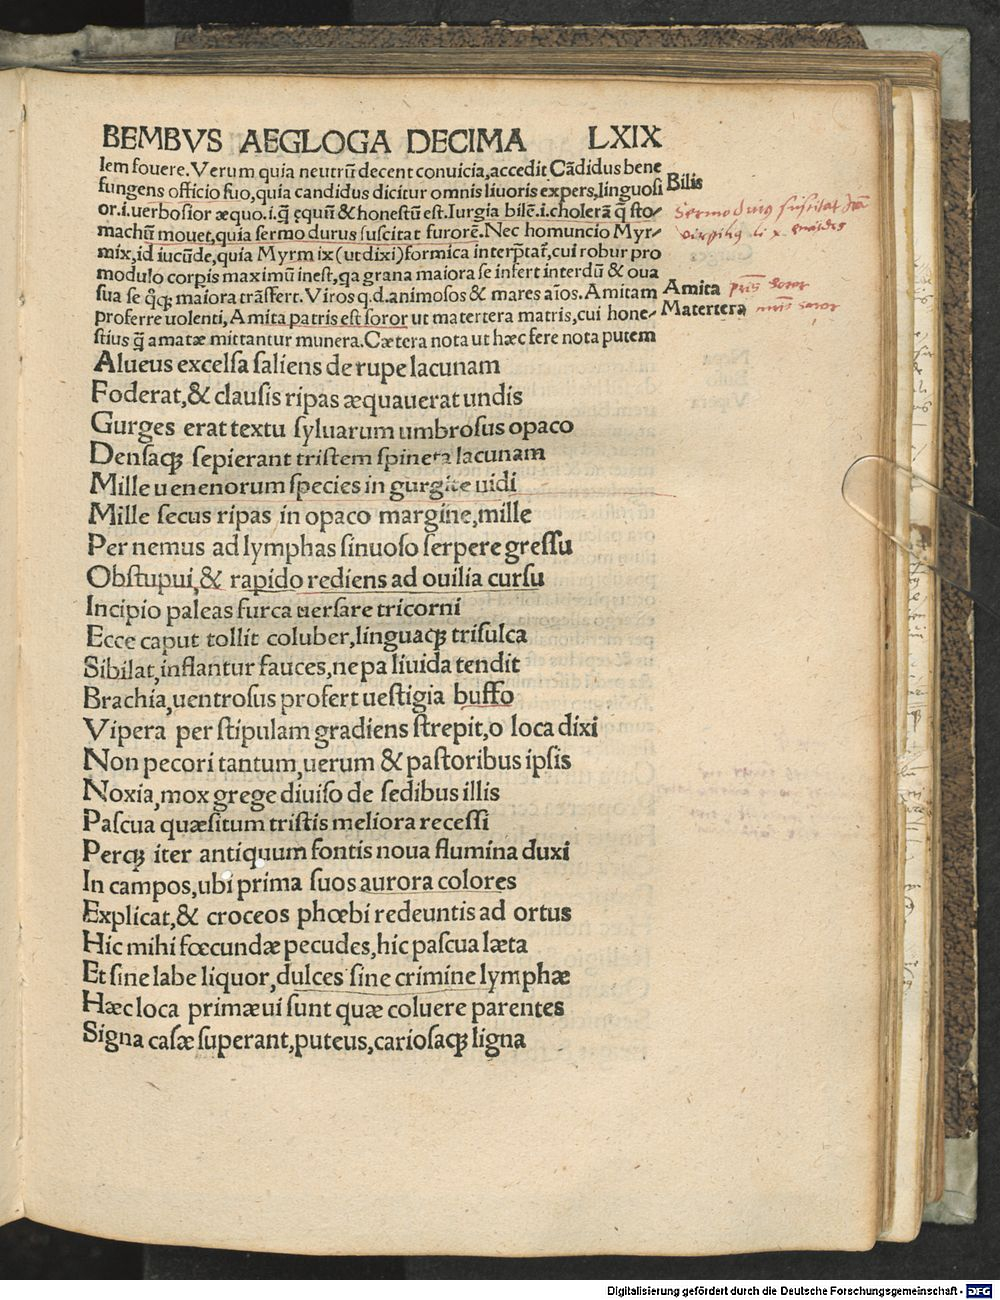 BEMBVS AEGLOGA DECIMA LXIX
lem fouere. Verum quia neutrũ decent conuicia, accedit Cãdidus bene
fungens officio suo, quia candidus dicitur omnis liuoris expers, linguosi
Bilis
or .i. uerbosior æquo .i. q̃ equũ & honestũ est. Iurgia bilẽ .i. cholerã q̃ sto-
machũ mouet, quia sermo durus suscitat furorẽ. Nec homuncio Myr-
Sermo durus suscitat
mix, id iucũde, quia Myrmix (ut dixi) formica interp̃tat̃, cui robur pro
modulo corpis maximũ inest, qa grana maiora se infert interdũ & oua
sua se q̃q; maiora trãsfert. Viros q.d. animosos & mares aĩos. Amitam
Amita p̃ris soror
proferre uolenti, Amita patris est soror ut matertera matris, cui hone-
Matertera m̃ris soror
stius q̃ amatæ mittantur munera. Cætera nota ut hæc fere nota putem
Alueus excelsa saliens de rupe lacunam
Foderat, & clausis ripas æquauerat undis
Gurges erat textu syluarum umbrosus opaco
Densaq; sepierant tristem spineta lacunam
Mille uenenorum species in gurgite uidi
Mille secus ripas in opaco margine, mille
Per nemus ad lymphas sinuoso serpere gressu
Obstupui, & rapido rediens ad ouilia cursu
Incipio paleas furca uersare tricorni
Ecce caput tollit coluber, linguaq; trisulca
Sibilat, inflantur fauces, nepa liuida tendit
Brachia, uentrosus profert uestigia buffo
Vipera per stipulam gradiens strepit, o loca dixi
Non pecori tantum, uerum & pastoribus ipsis
Noxia, mox grege diuiso de sedibus illis
Pascua quæsitum tristis meliora recessi
Perq; iter antiquum fontis noua flumina duxi
In campos, ubi prima suos aurora colores
Explicat, & croceos phœbi redeuntis ad ortus
Hic mihi fœcundæ pecudes, hic pascua læta
Et sine labe liquor, dulces sine crimine lymphæ
Hæc loca primæui sunt quæ coluere parentes
Signa casæ superant, puteus, cariosaq; ligna
Digitalisierung gefördert durch die Deutsche Forschungsgemeinschaft - DFG